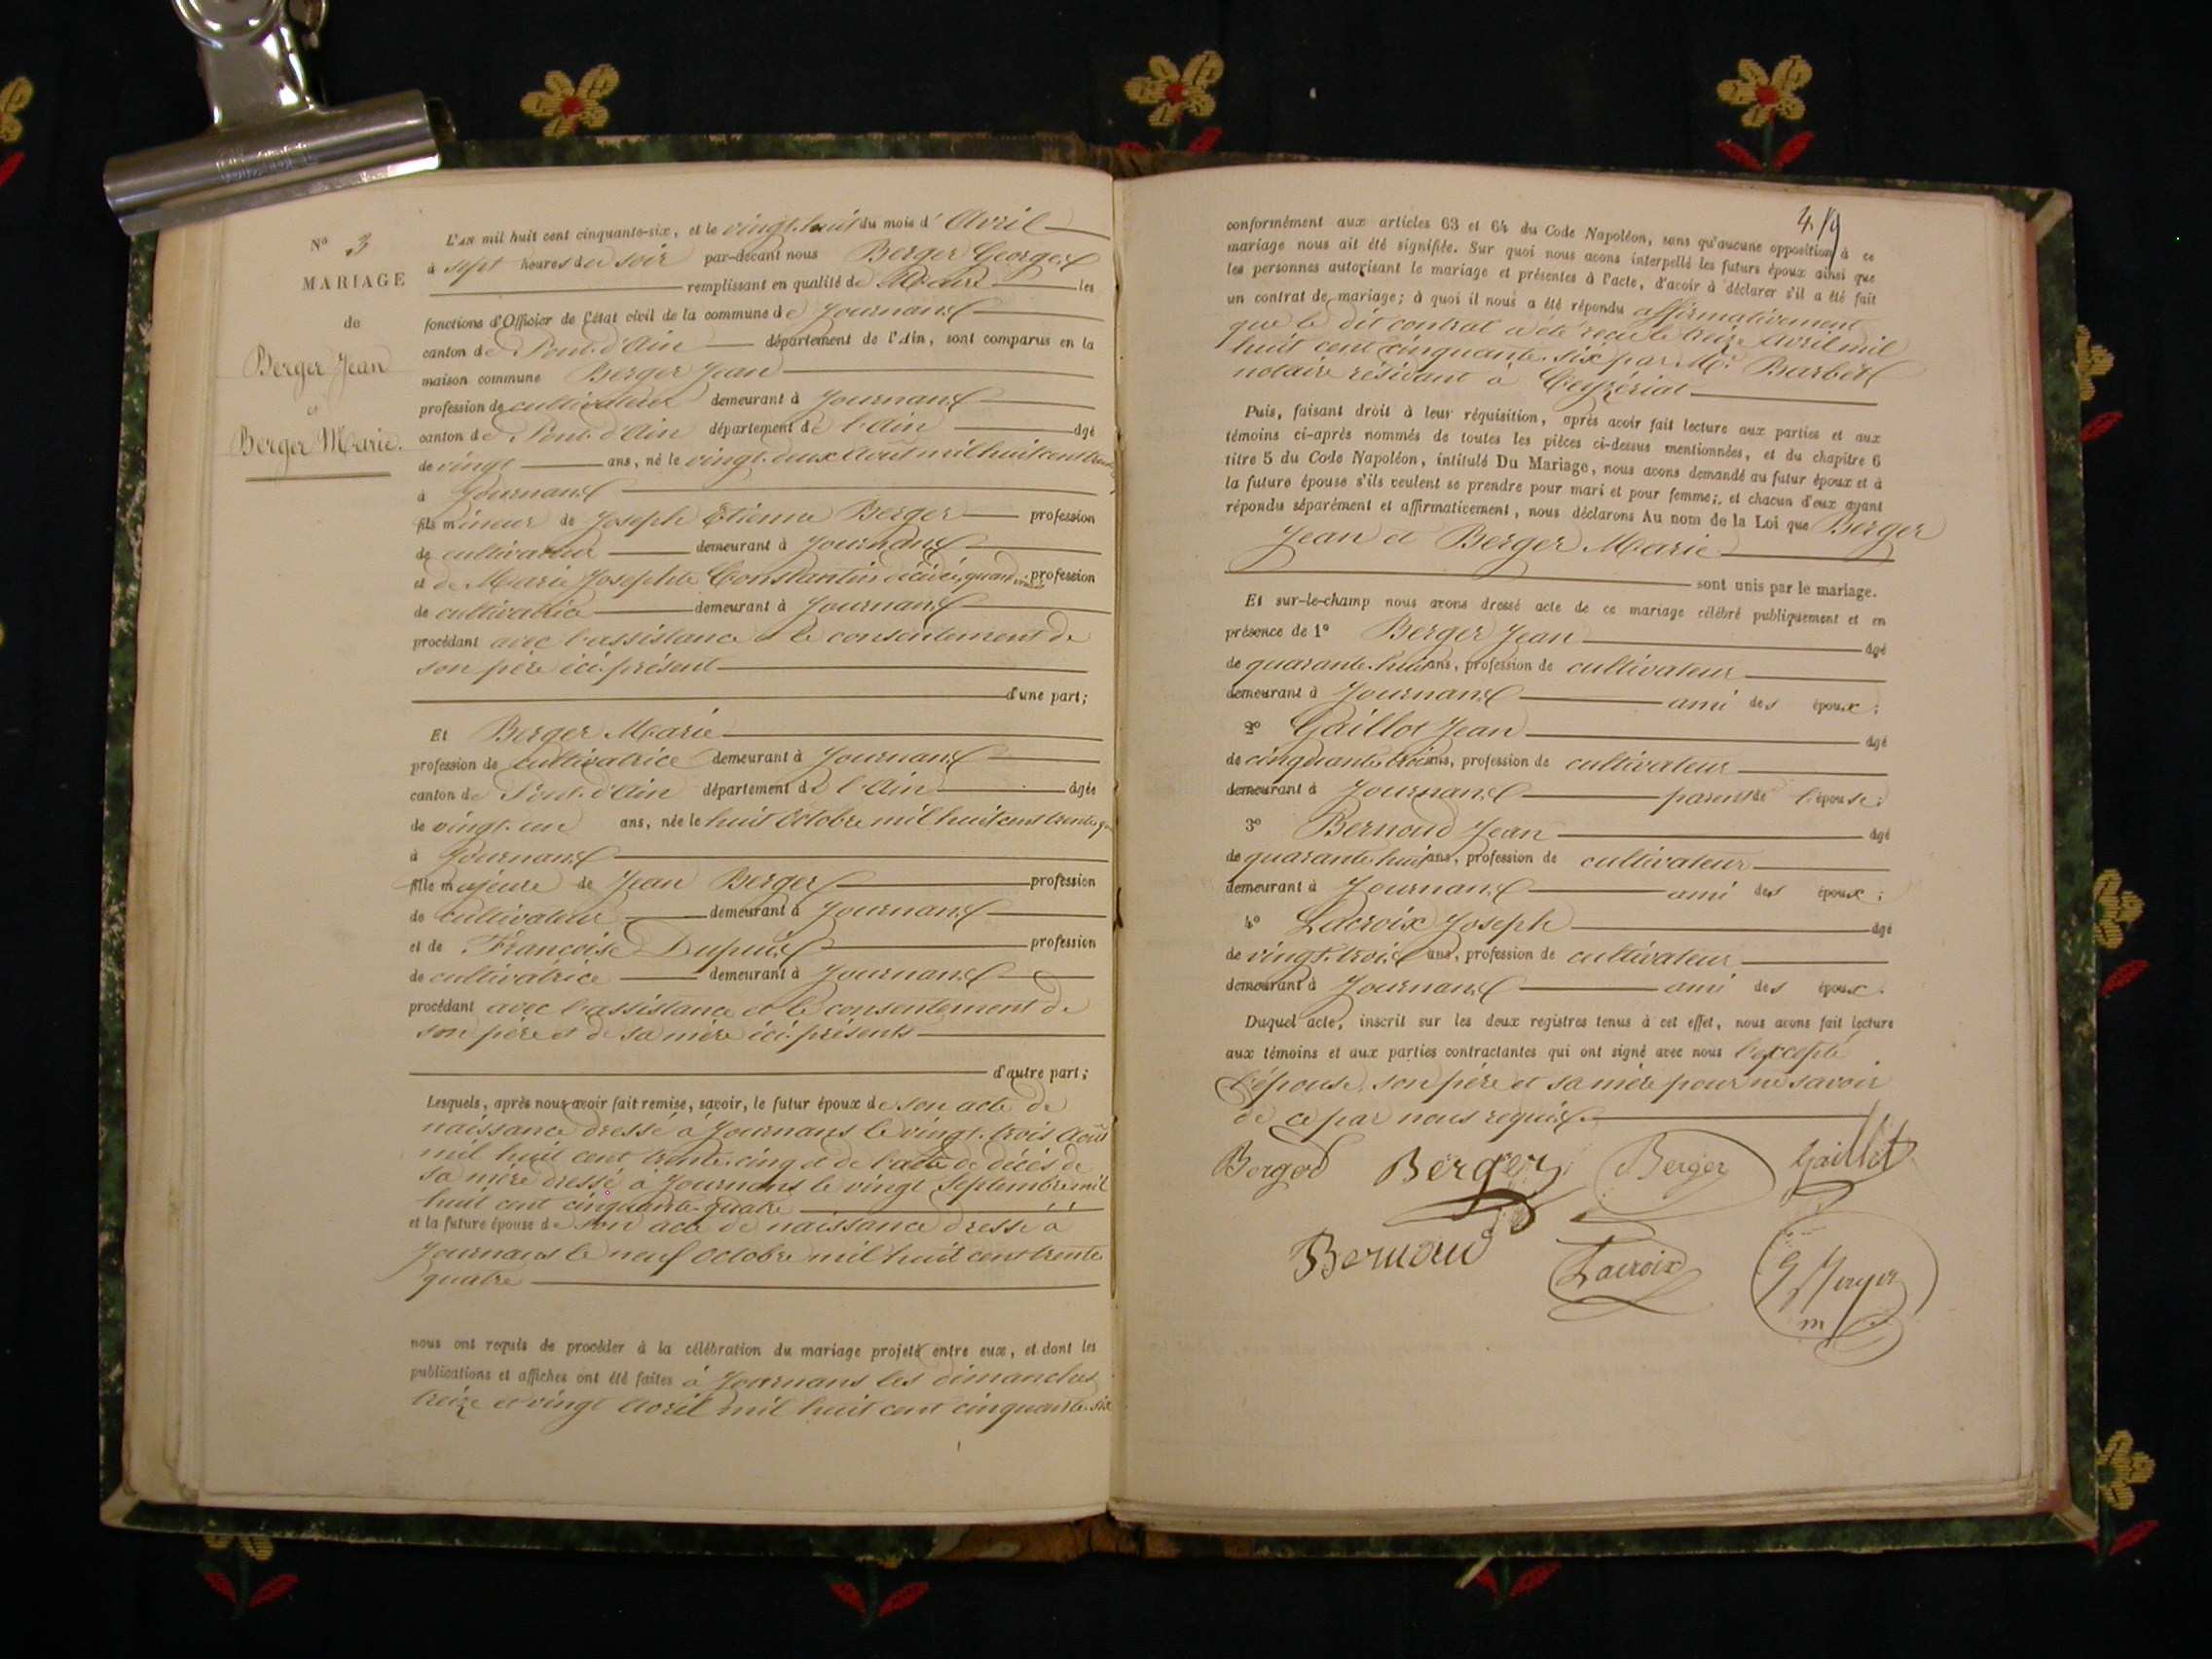 N° 3
MARIAGE
de
Berger Jean
et
Berger Marie.
L'AN mil huit cent cinquante-six, et le vingt-huit du mois d'Avril
à sept heures du soir par-devant nous Berger Georges
remplissant en qualité de Maire les
fonctions d'Officier de l'état civil de la commune de Journans
canton de Pont-d'Ain département de l'Ain, sont comparus en la
maison commune Berger Jean
profession de cultivateur demeurant à Journans
canton de Pont-d'Ain département de l'Ain âgé
de vingt ans, né le vingt-deux Août mil huit cent
à Journans
fils mineur de Joseph Etienne Berger profession
de cultivateur demeurant à Journans
et de Marie Josephte Constantin décédée, quand vivait profession
de cultivatrice demeurant à Journans
procédant avec l'assistance et le consentement de
son père ici présent
d'une part;
Et Berger Marie
profession de cultivatrice demeurant à Journans
canton de Pont-d'Ain département de l'Ain âgée
de vingt-un ans, née le huit Octobre mil huit cent trente
à Journans
fille majeure de Jean Berger profession
de cultivateur demeurant à Journans
et de Françoise Dupuis profession
de cultivatrice demeurant à Journans
procédant avec l'assistance et le consentement de
son père et de sa mère ici présents
d'autre part;
Lesquels, après nous avoir fait remise, savoir, le futur époux de son acte de
naissance dressé à Journans le vingt-trois Août
mil huit cent trente-cinq et de l'acte de décès de
sa mère dressé à Journans le vingt Septembre mil
huit cent cinquante-quatre
et la future épouse de son acte de naissance dressé à
Journans le neuf Octobre mil huit cent trente
quatre
nous ont requis de procéder à la célébration du mariage projeté entre eux, et dont les
publications et affiches ont été faites à Journans les dimanches
treize et vingt Avril mil huit cent cinquante-six
conformément aux articles 63 et 64 du Code Napoléon, sans qu'aucune opposition à ce
mariage nous ait été signifiée. Sur quoi nous avons interpellé les futurs époux ainsi que
les personnes autorisant le mariage et présentes à l'acte, d'avoir à déclarer s'il a été fait
un contrat de mariage; à quoi il nous a été répondu affirmativement
que le dit contrat a été reçu le treize Avril mil
huit cent cinquante-six par Me. Barbet
notaire résidant à Ceyzériat
Puis, faisant droit à leur réquisition, après avoir fait lecture aux parties et aux
témoins ci-après nommés de toutes les pièces ci-dessus mentionnées, et du chapitre 6
titre 5 du Code Napoléon, intitulé Du Mariage, nous avons demandé au futur époux et à
la future épouse s'ils veulent se prendre pour mari et pour femme; et chacun d'eux ayant
répondu séparément et affirmativement, nous déclarons Au nom de la Loi que Berger
Jean et Berger Marie
sont unis par le mariage.
Et sur-le-champ nous avons dressé acte de ce mariage célébré publiquement et en
présence de 1° Berger Jean âgé
de quarante-huit ans, profession de cultivateur
demeurant à Journans ami des époux;
2° Gaillot Jean âgé
de cinquante-trois ans, profession de cultivateur
demeurant à Journans parent de l'épouse;
3° Bernoud Jean âgé
de quarante-huit ans, profession de cultivateur
demeurant à Journans ami des époux;
4° Lacroix Joseph âgé
de vingt-trois ans, profession de cultivateur
demeurant à Journans ami des époux.
Duquel acte, inscrit sur les deux registres tenus à cet effet, nous avons fait lecture
aux témoins et aux parties contractantes qui ont signé avec nous excepté
l'épouse, son père et sa mère pour ne savoir
de ce par nous requis.
Berger Berger Berger Gaillot
Bernoud Lacroix G Berger
m